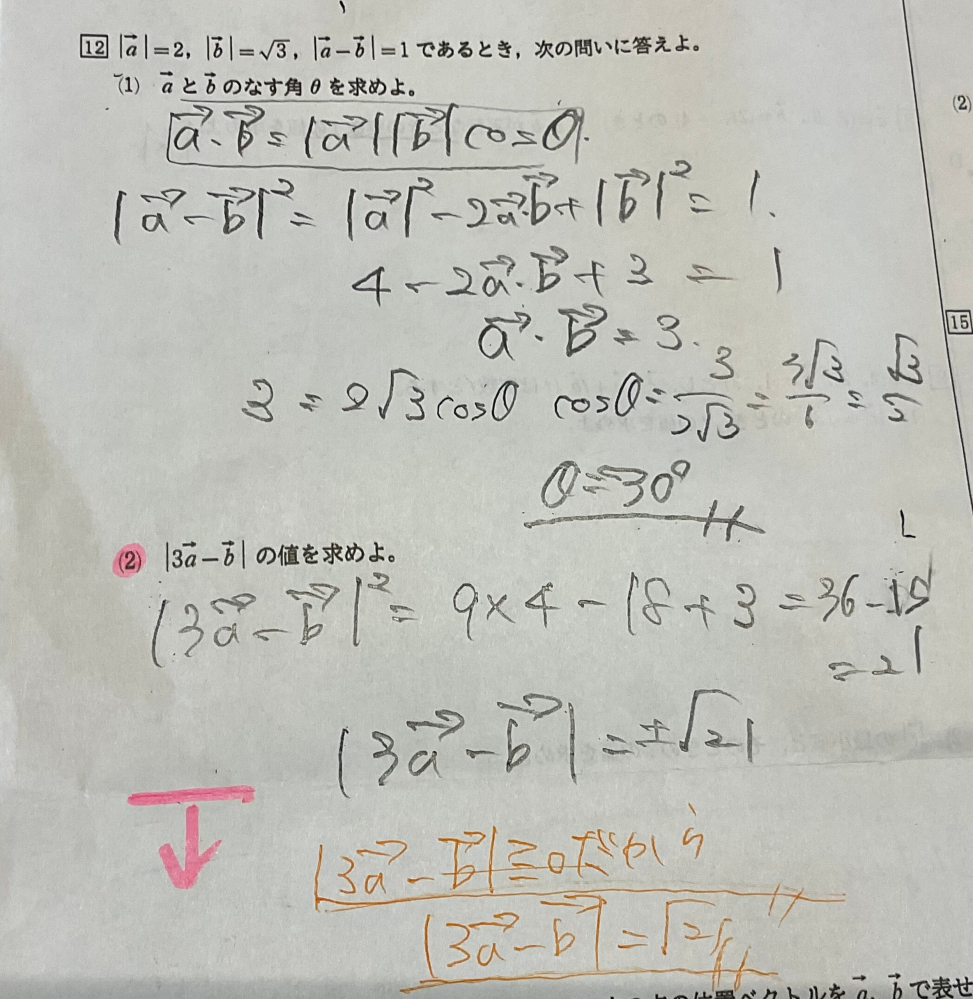 12 |a⃗|=2, |b⃗|=√3, |a⃗−b⃗|=1 であるとき，次の問いに答えよ。
(1) a⃗とb⃗のなす角θを求めよ。
(2)
a⃗・b⃗=|a⃗||b⃗|cosθ.
|a⃗−b⃗|²=|a⃗|²−2a⃗・b⃗+|b⃗|²=1.
15
4−2a⃗・b⃗+3=1
a⃗・b⃗=3.
3=2√3cosθ cosθ=3/2√3=3√3/6=√3/2
θ=30°
(2) |3a⃗−b⃗|の値を求めよ。
|3a⃗−b⃗|²=9×4−18+3=36−15
=21
|3a⃗−b⃗|=±√21
|3a⃗−b⃗|≧0だから
|3a⃗−b⃗|=√21
ベクトルを a⃗, b⃗ で表せ